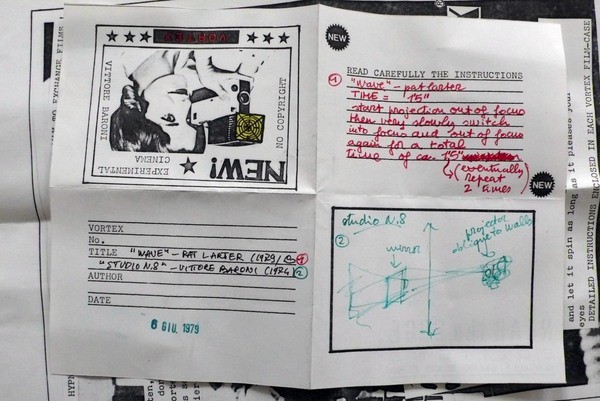 VORTEX
VITTORE BARONI
NO COPYRIGHT
EXPERIMENTAL
CINEMA
NEW!
NEW
READ CAREFULLY THE INSTRUCTIONS
1 "Wave" - pat larter
TIME = 15"
start projection out of focus
then very slowly switch
into focus and out of focus
again for a total
time of ca. 15"
(eventually
repeat
2 times)
NEW
VORTEX
No.
TITLE "WAVE" - PAT LARTER (1979) 1
"STUDIO N.8" - VITTORE BARONI (1974) 2
AUTHOR
DATE
6 GIU. 1979
studio N.8
2
mirror
projector
oblique to walls
EXCHANGE FILMS
HYPN
and let it spin as long as it pleases your
eyes
DETAILED INSTRUCTIONS ENCLOSED IN EACH VORTEX FILM-CASE